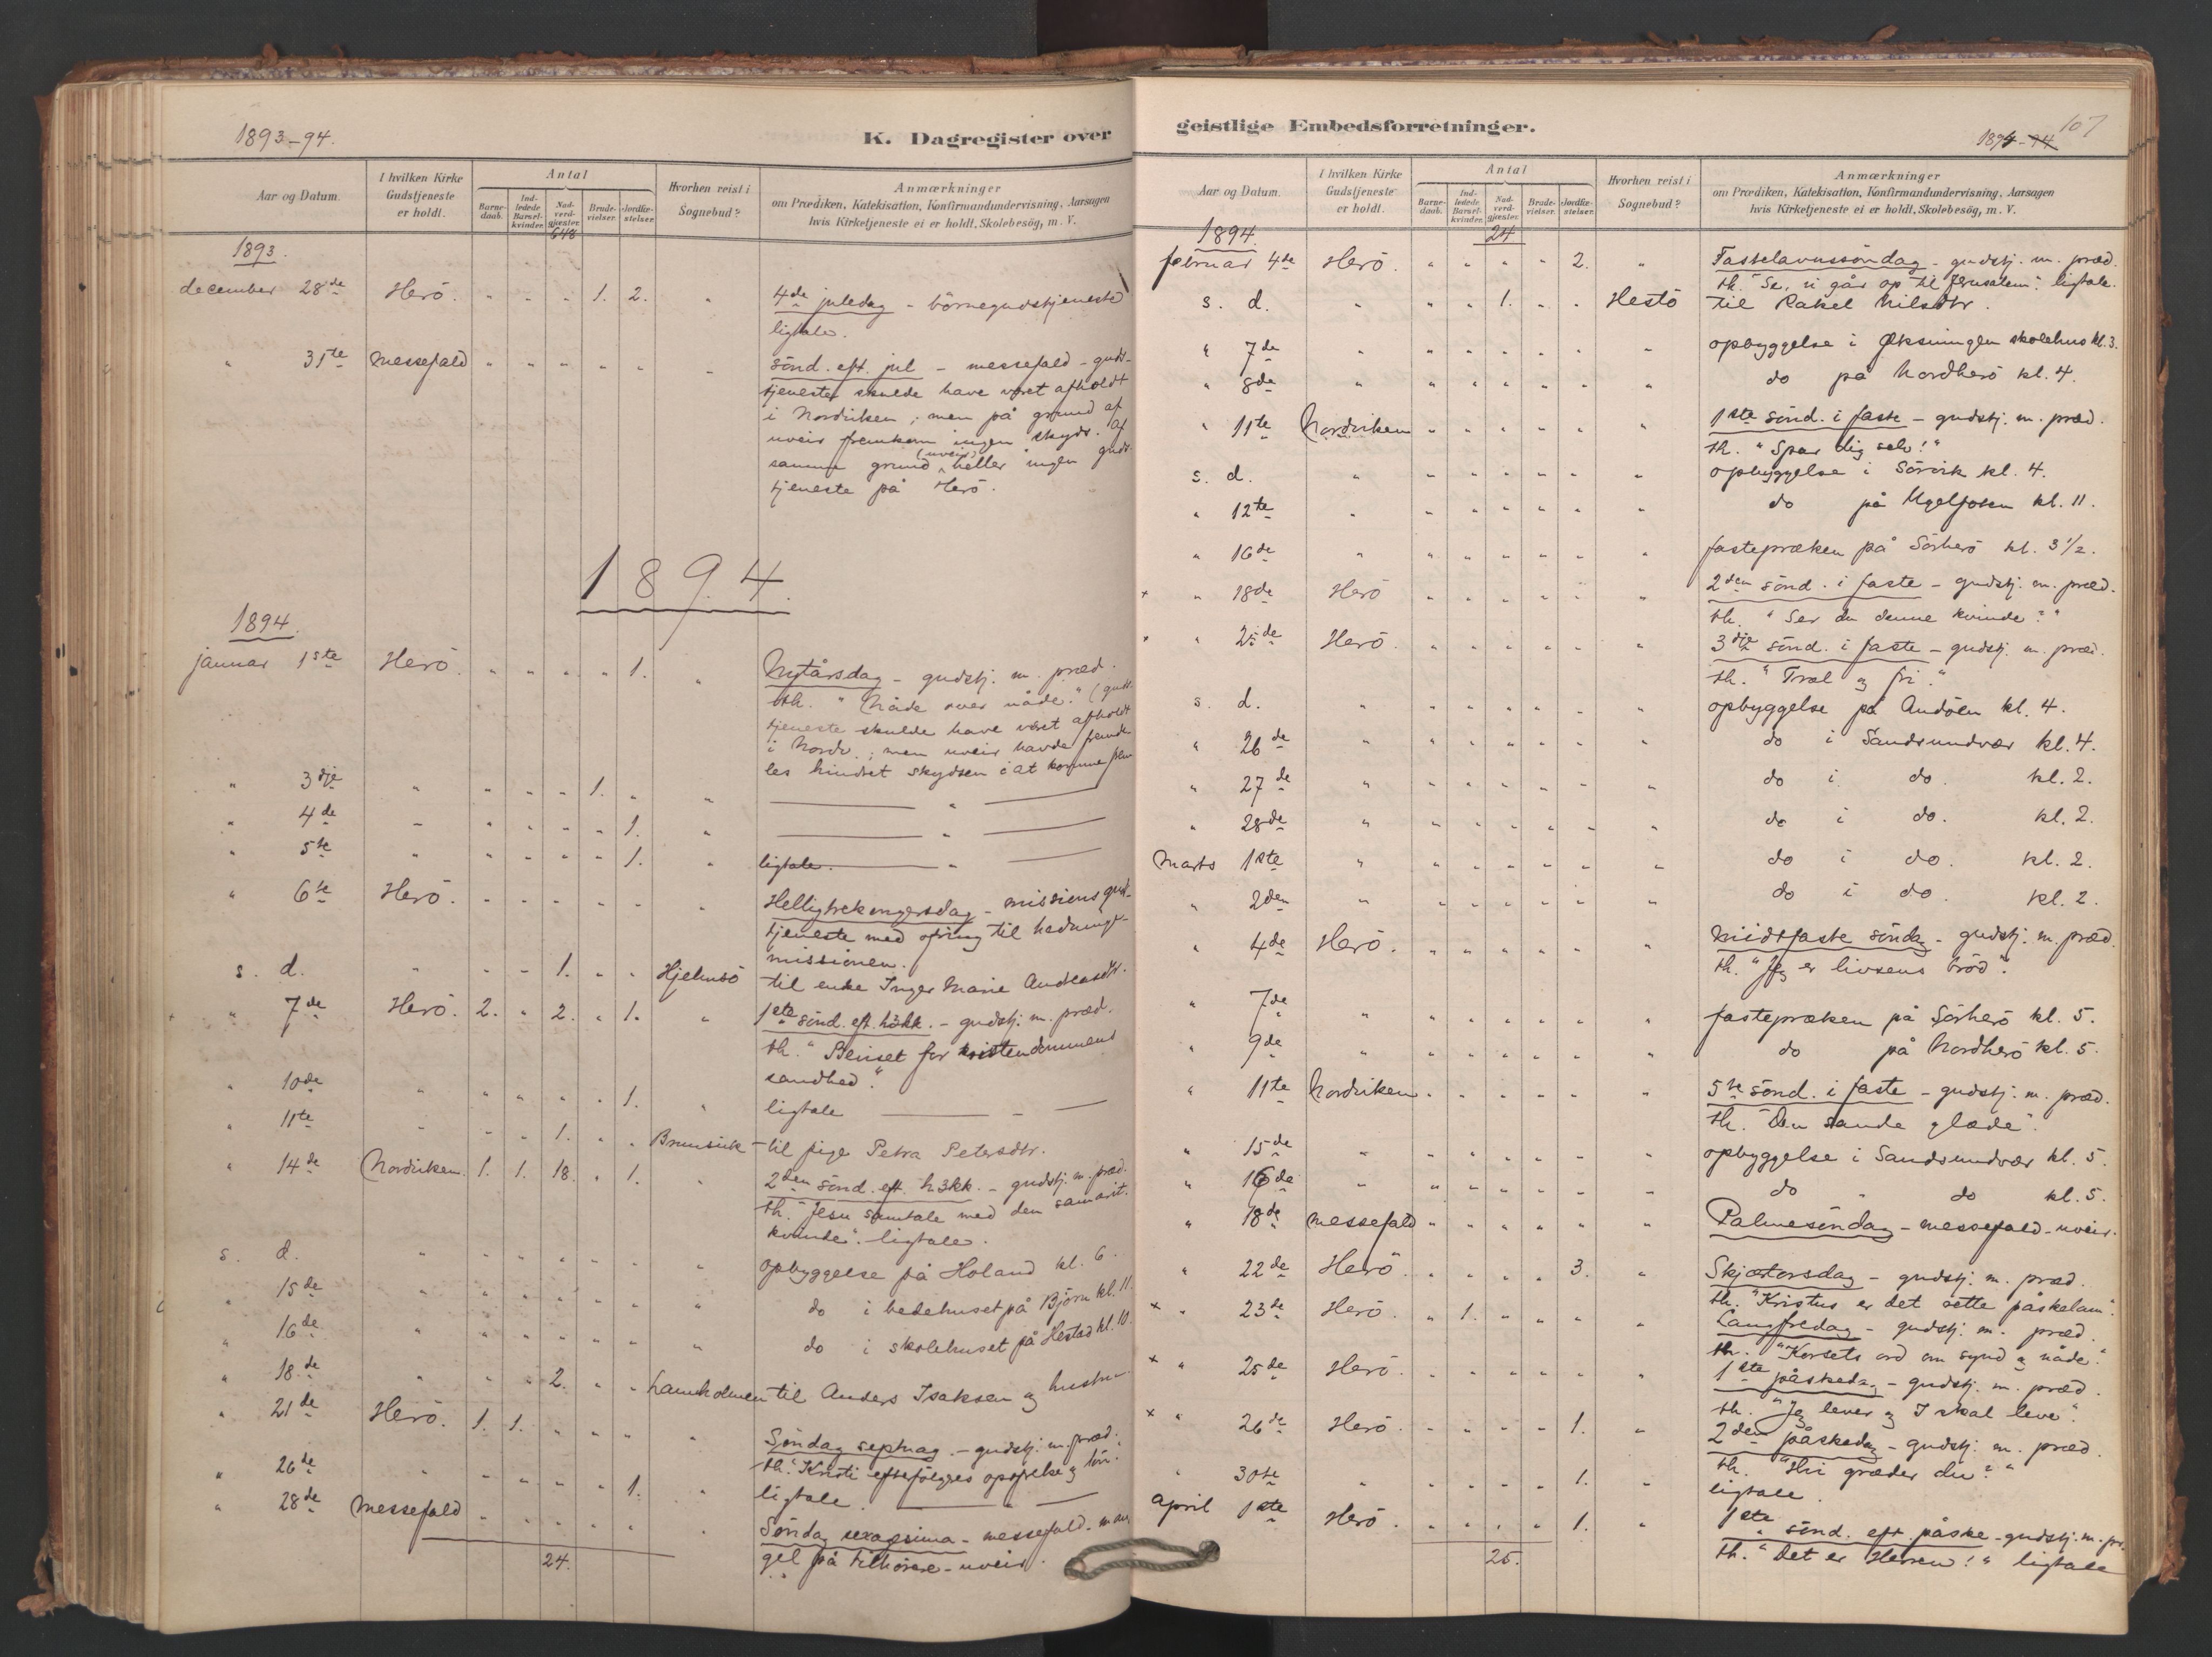 1893-94.
K. Dagregister over
Aar og Datum.
I hvilken Kirke
Gudstjeneste
er holdt.
Antal
Barne-
daab.
Ind-
ledede
Barsel-
kvinder.
Nad-
verd-
gjester.
Brude-
vielser.
Jordfæ-
stelser.
Hvorhen reist i
Sognebud?
Anmærkninger
om Prædiken, Katekisation, Konfirmandundervisning, Aarsagen
hvis Kirketjeneste ei er holdt, Skolebesög, m. V.
648
1893.
december 28de Herö. " " " 1. 2. " 4de juledag - börnegudstjeneste
ligtale.
" 31te Messefald " " " " " " sönd. eft. jul - messefald - guds-
tjeneste skulde have været afholdt
i Nordviken; men på grund af
uveir fremkom ingen skyds. Af
samme grund (uveir) heller ingen guds-
tjeneste på Herö.
1894.
1894.
januar 1ste Herö " " " " 1. " Nytårsdag - gudstj. m. præd.
th. "Nåde over nåde." (guds-
tjeneste skulde have været afholdt
i Nordv.; men uveir havde fremde-
les hindret skydsen i at komme frem
" 3dje " " " " 1. " " "
" 4de " " " " " 1. " "
" 5te " " " " " 1. " ligtale. "
" 6te Herö. " " " " " " Helligtrekongersdag - missionsgud-
tjeneste med ofring til hedninge-
missionen.
s. d. " " " 1. " " Hjelmsö til enke Inger Marie Andreasdtr.
" 7de Herö. 2. " 2. " 1. " 1ste sönd. eft. h3kk. - gudstj. m. præd.
th. "Beviset for kristendommens
sandhed."
" 10de " " " " " 1. " ligtale "
" 11te " " " 1. " " Brunsvik til pige Petra Petersdtr.
" 14de Nordviken. 1. 1. 18. " 1. " 2den sönd. eft. h3kk. - gudstj. m. præd.
th. "Jesu samtale med den samarit.
kvinde". ligtale.
s. d. " " " " " " " opbyggelse på Holand kl. 6.
" 15de " " " " " " " do i bedehuset på Björn kl. 11
" 16de " " " " " " " do i skolehuset på Hestad kl. 10
" 18de " " " 2. " " Lamholmen til Anders Isaksen og hustru
" 21de Herö. 1. 1. " " " " Söndag septuag. - gudstj. m. præd.
th. "Kristi efterfölgres opofrelse og lön."
" 26de " " " " " 1. " ligtale. "
" 28de Messefald " " " " " " Söndag sexagesima - messefald - man-
gel på tilhörere - uveir.
24.
geistlige Embedsforretninger.
1894-94
107
Aar og Datum.
I hvilken Kirke
Gudstjeneste
er holdt.
Antal
Barne-
daab.
Ind-
ledede
Barsel-
kvinder.
Nad-
verd-
gjester.
Brude-
vielser.
Jordfæ-
stelser.
Hvorhen reist i
Sognebud?
Anmærkninger
om Prædiken, Katekisation, Konfirmandundervisning, Aarsagen
hvis Kirketjeneste ei er holdt, Skolebesög, m. V.
24
1894.
februar 4de Herö. " " " " 2. " Fastelavnssöndag - gudstj. m. præd.
th. "Se, vi går op til Jerusalem". ligtale.
s. d. " " " 1. " " Hestö til Rakel Nilsdtr.
" 7de " " " " " " " opbyggelse i Øksningen skolehus kl. 3.
" 8de " " " " " " " do på Nordherö kl. 4.
" 11te Nordviken " " " " " " 1ste sönd. i faste - gudstj. m. præd.
th. "Spar dig selv!"
s. d. " " " " " " " opbyggelse i Sörvik kl. 4.
" 12te " " " " " " " do på kl. 11.
" 16de " " " " " " " fastepræken på Sörherö kl. 3 1/2.
× " 18de Herö " " " " " " 2den sönd. i faste - gudstj. m. præd.
th. "Ser du denne kvinde?"
× " 25de Herö. " " " " " " 3dje sönd. i faste - gudstj. m. præd.
th. "Træl og fri."
s. d. " " " " " " " opbyggelse på Andöen kl. 4.
" 26de " " " " " " " do i Sandsundvær kl. 4.
" 27de " " " " " " " do i do. kl. 2.
" 28de " " " " " " " do i do. kl. 2.
Marts 1ste " " " " " " " do i do. kl. 2.
" 2den " " " " " " " do i do. kl. 2.
" 4de Herö. " " " " " " Midtfaste söndag - gudstj. m. præd.
th. "Jeg er livsens bröd".
" 7de " " " " " " " fastepræken på Sörherö kl. 5.
" 9de " " " " " " " do på Nordherö kl. 5.
" 11te Nordviken " " " " " " 5te sönd. i faste - gudstj. m. præd.
th. "Den sande glæde".
" 15de " " " " " " " opbyggelse i Sandsundvær kl. 5.
" 16de " " " " " " " do " do kl. 5.
" 18de messefald " " " " " " Palmesöndag - messefald - uveir.
" 22de Herö. " " " " 3. " Skjærtorsdag - gudstj. m. præd.
th. "Kristus er det rette påskelam".
× " 23de Herö. " 1. " " " " Langfredag - gudstj. m. præd.
th. "Korsets ord om synd og nåde."
× " 25de Herö. " " " " " " 1ste påskedag - gudstj. m. præd.
th. "Jeg lever og I skal leve".
× " 26de Herö. " " " " 1. " 2den påskedag - gudstj. m. præd.
th. "Hvi græder du?"
" 30te " " " " " 1. " ligtale.
April 1ste Herö. " " " " 1. " 1ste sönd. eft. påske - gudstj. m. pr.
th. "Det er Herren!" ligtale
25.